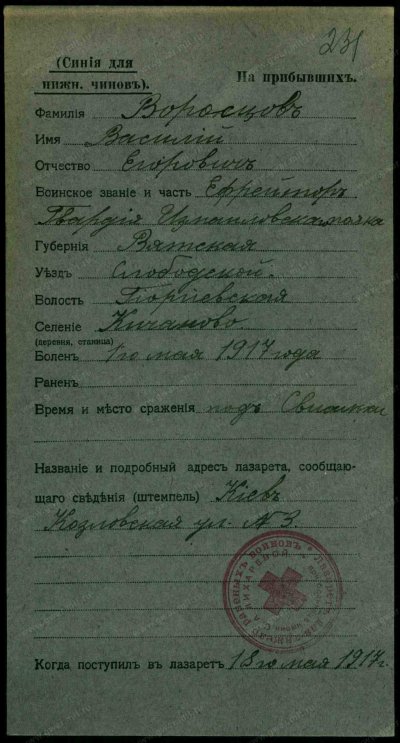 231
(Синія для
нижн. чиновъ).
На прибывшихъ.
Фамилия Воросцовъ
Имя Василій
Отчество Егоровичъ
Воинское званіе и часть Ефрейторъ
Гвардія Измайловска полка
Губернія Вятская
Уѣздъ Слободской.
Волость Георгіевская
Селеніе Кичаново
(деревня, станица)
Боленъ 1го мая 1917 года
Раненъ
Время и мѣсто сраженія подъ
Названіе и подробный адресъ лазарета, сообщаю-
щаго свѣдѣнія (штемпель) Кіевъ
Козловская ул. N 3.
Когда поступилъ въ лазаретъ 18го мая 1917г.